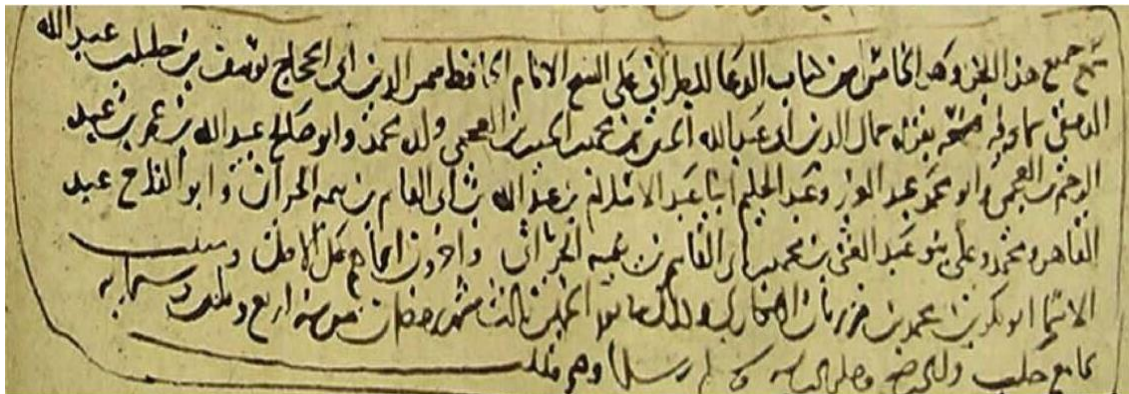 سمع جميع هذا الجزء وهو الخامس من كتاب الدعاء للطبراني على الشيخ الامام الحافظ شمس الدين ابى الحجاج يوسف بن خليل بن عبد الله
الدمشقي سماعه فيه بقراءة جمال الدين ابى عبد الله الحسين بن الحسين بن العجمي ولده محمد وابو صالح عبد الله بن عمر بن عبد
الرحيم بن العجمي وابو محمد عبد العزيز وعبد الحليم ابنا عبد السلام بن عبد الله بن ابى القاسم بن تيمية الحرانى وابو الفرج عبد
القاهر ومحمد وعلى بنو عبد الغنى بن محمد بن ابى القاسم بن تيمية الحرانى واخرون اسماهم على الاصل
الاسما ابو بكر بن محمد بن وذلك ثالث شهر رمضان من سنة اربع وثلثين وستمايه
بجامع حلب ولله الحمد وصلى الله على